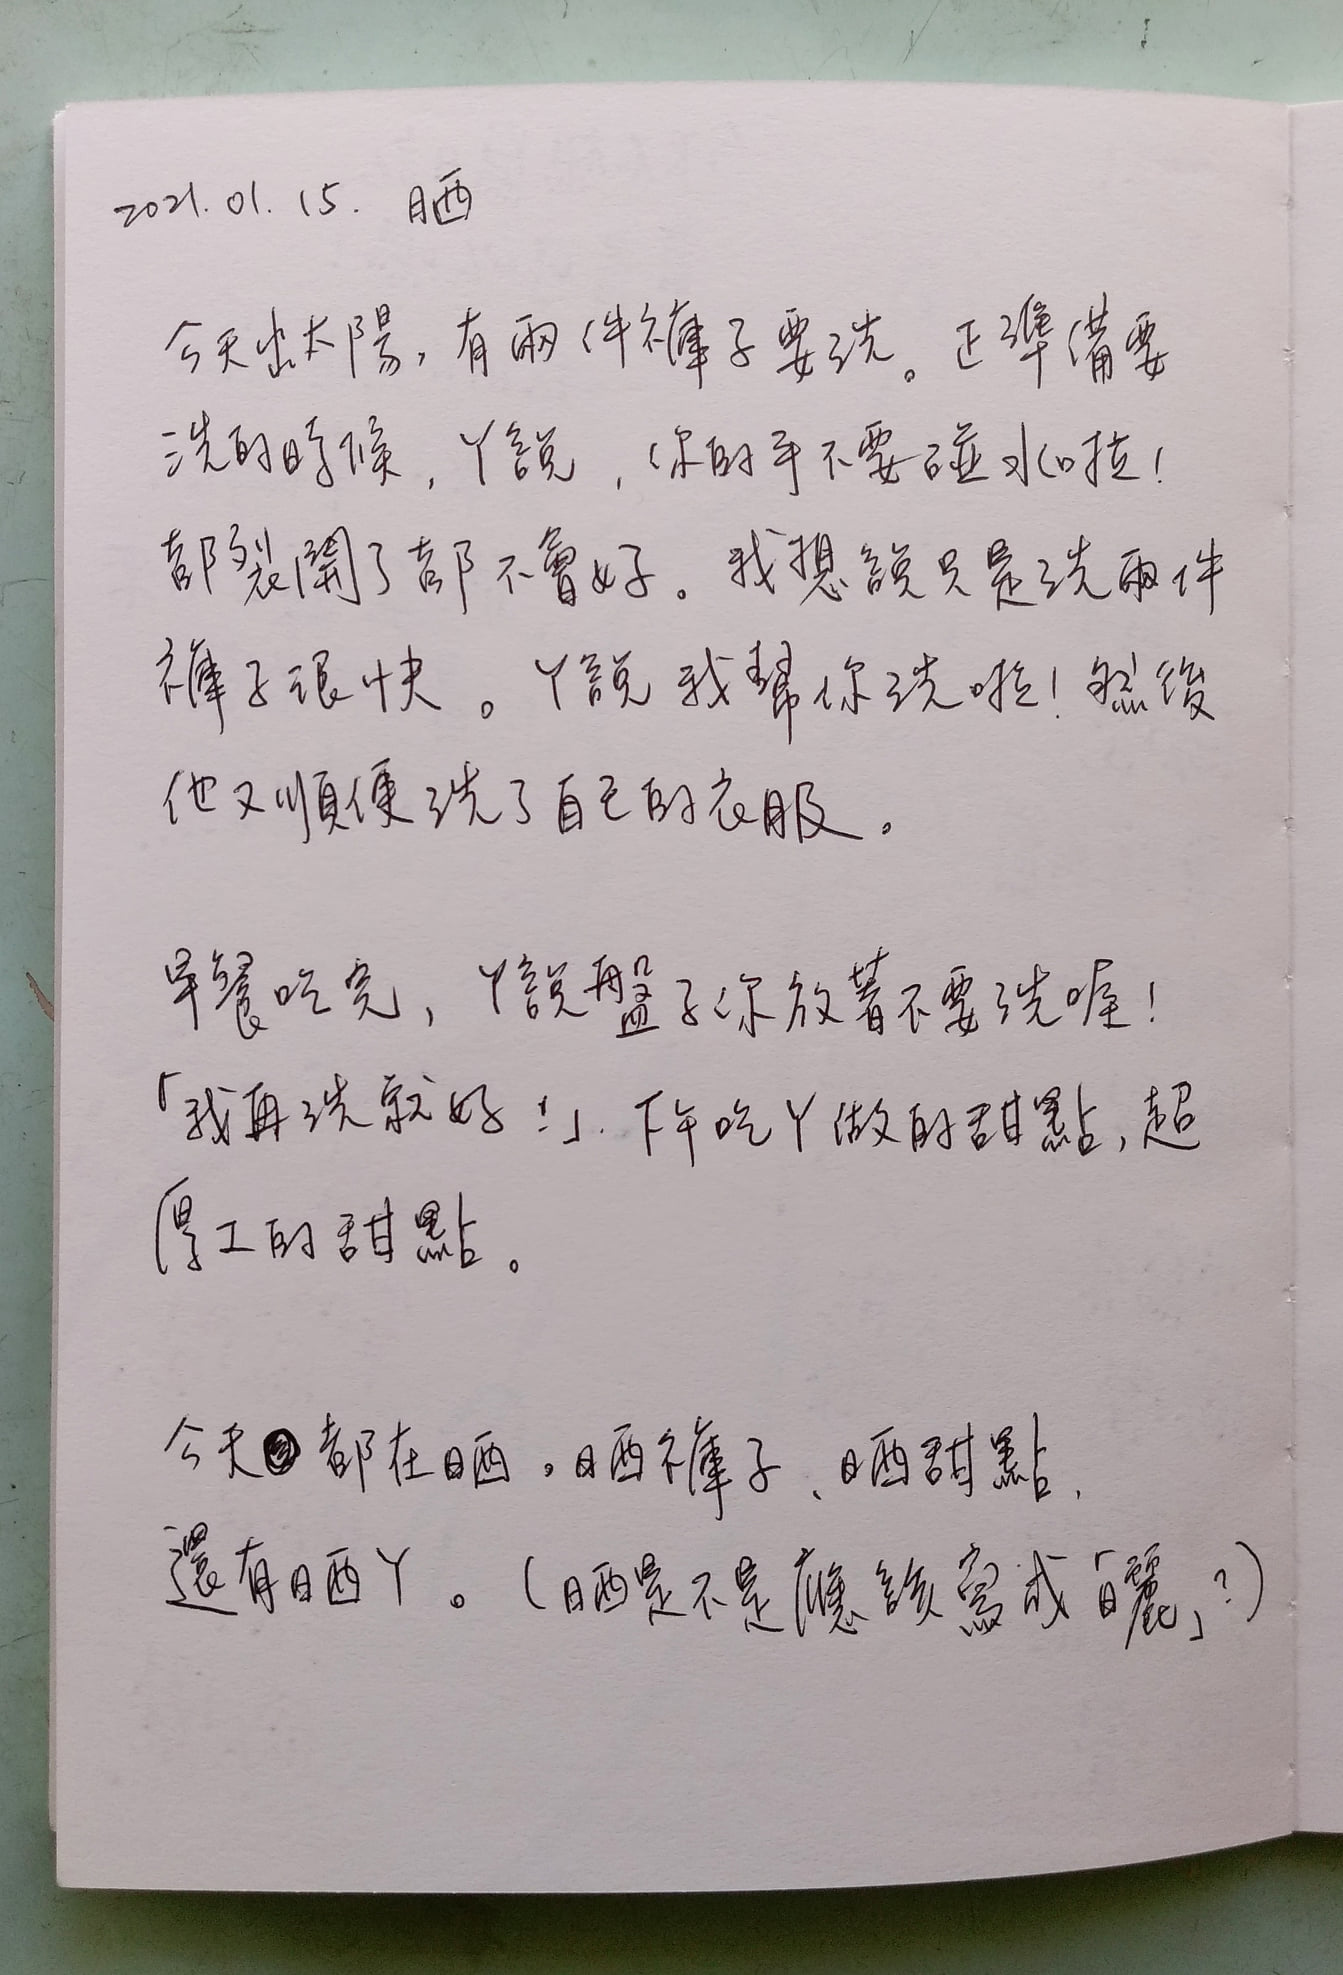 2021.01.15. 晒
今天出太陽,有兩件褲子要洗。正準備要
洗的時候,丫說,你的手不要碰水啦!
都裂開了都不會好。我想說只是洗兩件
褲子很快。丫說我幫你洗啦!然後
他又順便洗了自己的衣服。
早餐吃完,丫說盤子你放著不要洗喔!
「我再洗就好!」.下午吃丫做的甜點,超
厚工的甜點。
今天都在晒。晒褲子、晒甜點、
還有晒丫。(晒是不是應該寫成「曬」?)